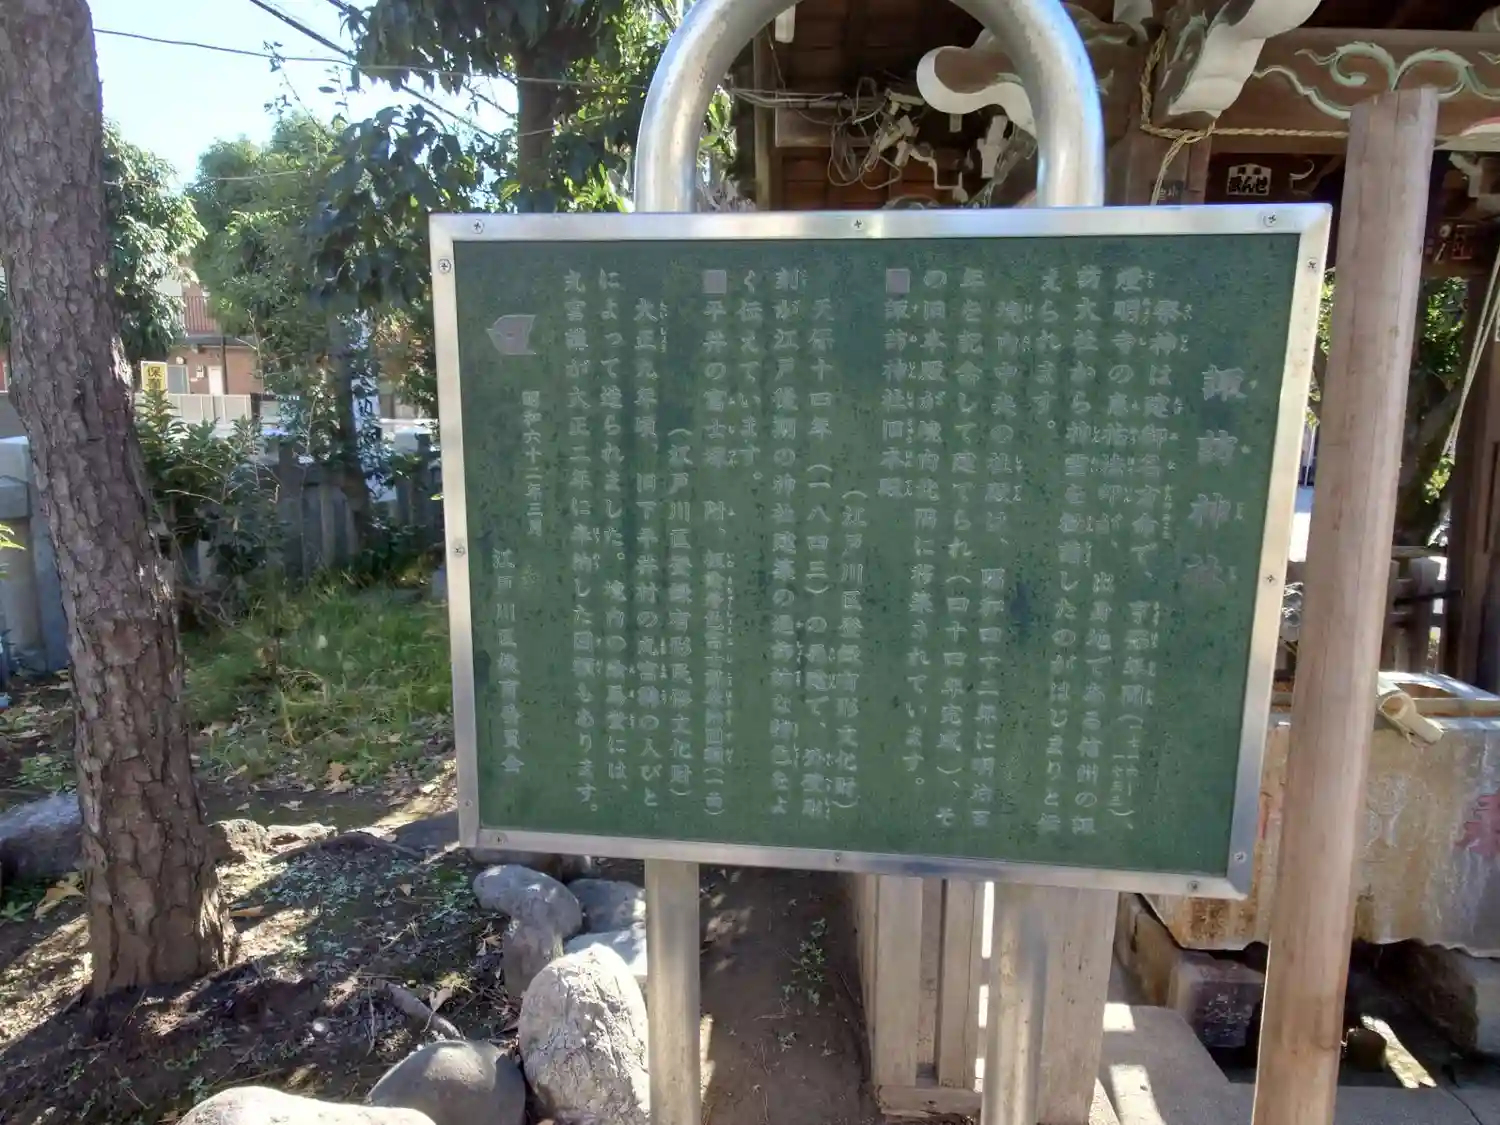 諏訪神社
祭神は建御名方命で、享保年間(一七一六〜一七三三)、
燈明寺の恵祐法印が、出身地である信州の諏
訪大社から神霊を勧請したのがはじまりと伝
えられます。
境内中央の社殿は、昭和四十二年に明治百
年を記念して建てられ(四十四年完成)、そ
の旧本殿が境内北隅に移築されています。
■諏訪神社旧本殿
(江戸川区登録有形文化財)
天保十四年(一八四三)の再建で、
刻が江戸後期の神社建築の
く伝えています。
■平井の富士塚 附、
(江戸川区登録有形民俗文化財)
大正二年頃、旧下平井村の丸宮講の人びと
によって造られました。境内の絵馬堂には、
丸宮講が大正二年に奉納した図額もあります。
昭和六十二年三月
江戸川区教育委員会